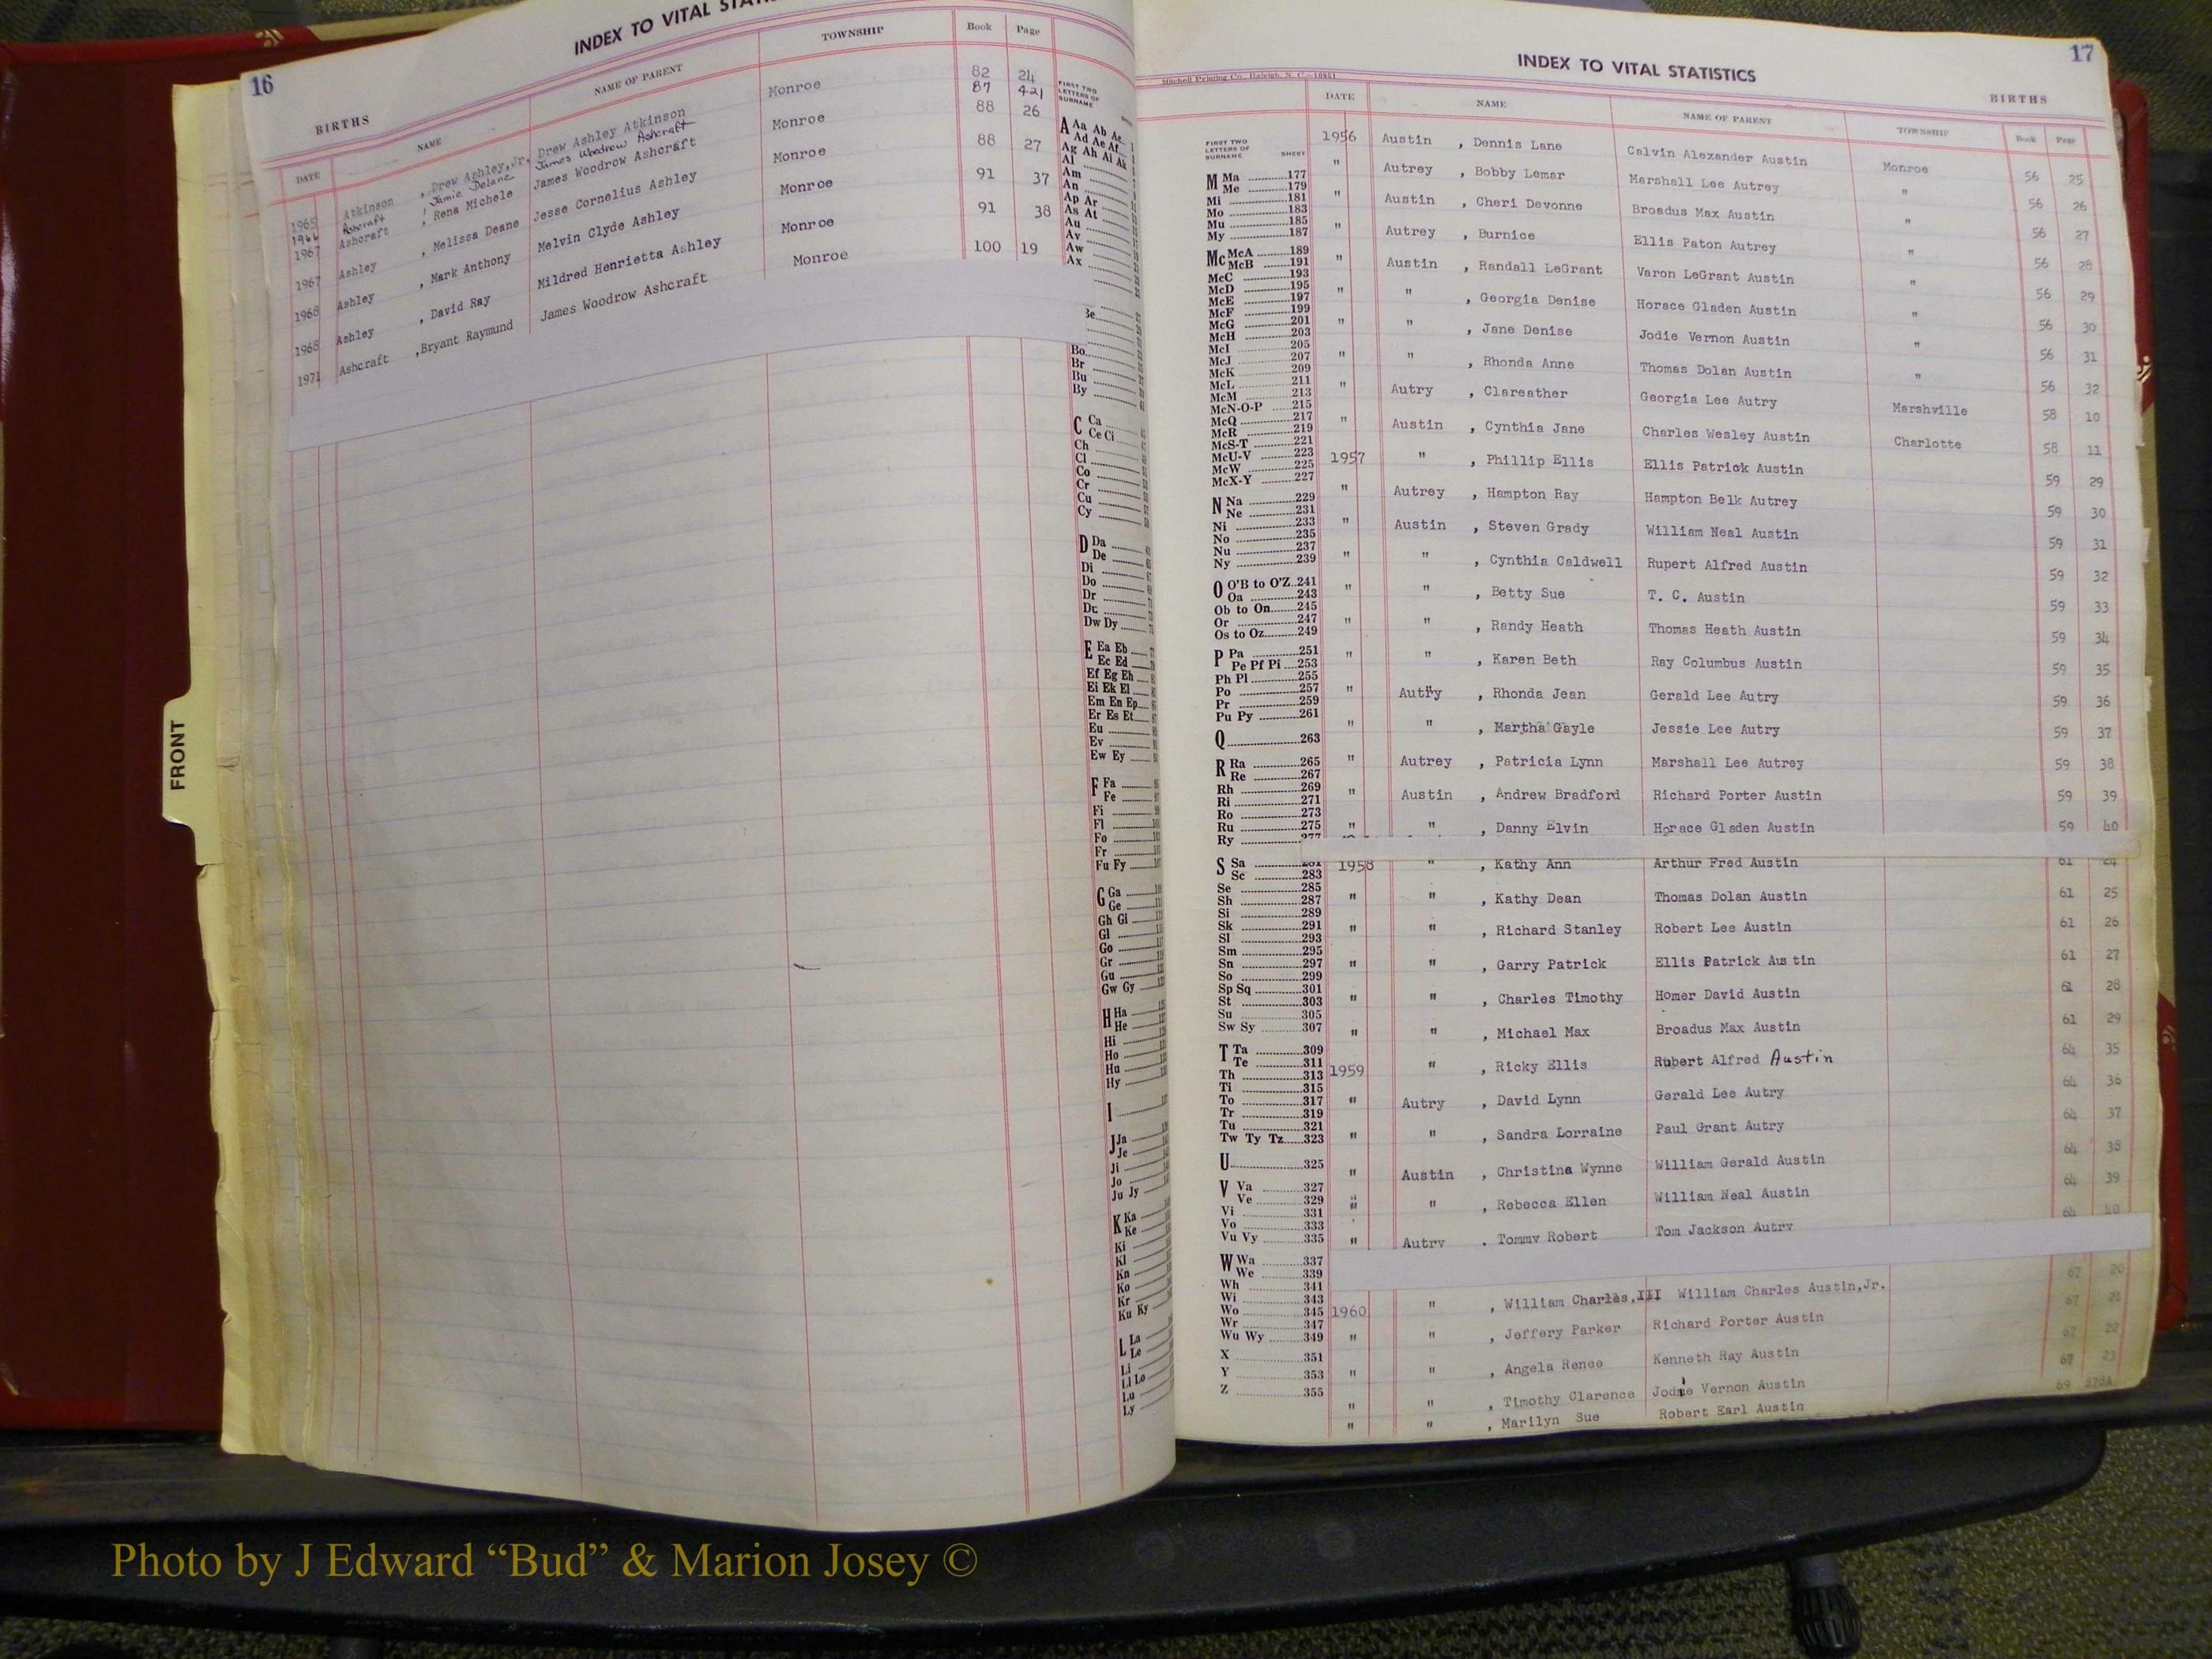 16
INDEX TO VITAL
BIRTHS
DATE NAME NAME OF PARENT TOWNSHIP Book Page
1965 Atkinson , Drew Ashley, Jr. Drew Ashley Atkinson Monroe 82 24
1966 Ashcraft , Jamie Delane James Woodrow Ashcraft 87 421
1967 Ashcraft , Rena Michele James Woodrow Ashcraft Monroe 88 26
1967 Ashley , Melissa Deane Jesse Cornelius Ashley Monroe 88 27
1968 Ashley , Mark Anthony Melvin Clyde Ashley Monroe 91 37
1968 Ashley , David Ray Mildred Henrietta Ashley Monroe 91 38
1971 Ashcraft ,Bryant Raymund James Woodrow Ashcraft Monroe 100 19
FRONT
FIRST TWO
LETTERS OF
SURNAME
A Aa Ab Ae
Ad Ae Af
Ag Ah Ai Ak
Al
Am
An
Ap Ar
As At
Au
Av
Aw
Ax
Bo
Br
Bu
By
C Ca
Ce Ci
Ch
Cl
Co
Cr
Cu
Cy
D Da
De
Di
Do
Dr
Du
Dw Dy
E Ea Eb
Ec Ed
Ef Eg Eh
Ei Ek El
Em En Ep
Er Es Et
Eu
Ev
Ew Ey
F Fa
Fe
Fi
Fl
Fo
Fr
Fu Fy
G Ga
Ge
Gh Gi
Gl
Go
Gr
Gu
Gw Gy
H Ha
He
Hi
Ho
Hu
Hy
I
J Ja
Je
Ji
Jo
Ju Jy
K Ka
Ke
Ki
Kl
Kn
Ko
Kr
Ku Ky
L La
Le
Li
Ll Lo
Lu
Ly
17
INDEX TO VITAL STATISTICS
Mitchell Printing Co., Raleigh, N. C.—16951
BIRTHS
DATE NAME NAME OF PARENT TOWNSHIP Book Page
FIRST TWO
LETTERS OF
SURNAME SHEET
M Ma 177
Me 179
Mi 181
Mo 183
Mu 185
My 187
Mc McA 189
McB 191
McC 193
McD 195
McE 197
McF 199
McG 201
McH 203
McI 205
McJ 207
McK 209
McL 211
McM 213
McN-O-P 215
McQ 217
McR 219
McS-T 221
McU-V 223
McW 225
McX-Y 227
N Na 229
Ne 231
Ni 233
No 235
Nu 237
Ny 239
O O'B to O'Z 241
Oa 243
Ob to On 245
Or 247
Os to Oz 249
P Pa 251
Pe Pf Pi 253
Ph Pl 255
Po 257
Pr 259
Pu Py 261
Q 263
R Ra 265
Re 267
Rh 269
Ri 271
Ro 273
Ru 275
Ry 277
S Sa 281
Sc 283
Se 285
Sh 287
Si 289
Sk 291
Sl 293
Sm 295
Sn 297
So 299
Sp Sq 301
St 303
Su 305
Sw Sy 307
T Ta 309
Te 311
Th 313
Ti 315
To 317
Tr 319
Tu 321
Tw Ty Tz 323
U 325
V Va 327
Ve 329
Vi 331
Vo 333
Vu Vy 335
W Wa 337
We 339
Wh 341
Wi 343
Wo 345
Wr 347
Wu Wy 349
X 351
Y 353
Z 355
1956 Austin , Dennis Lane Calvin Alexander Austin Monroe 56 25
" Autrey , Bobby Lemar Marshall Lee Autrey " 56 26
" Austin , Cheri Devonne Broadus Max Austin " 56 27
" Autrey , Burnice Ellis Paton Autrey " 56 28
" Austin , Randall LeGrant Varon LeGrant Austin " 56 29
" " , Georgia Denise Horace Gladen Austin " 56 30
" " , Jane Denise Jodie Vernon Austin " 56 31
" " , Rhonda Anne Thomas Dolan Austin " 56 32
" Autry , Clareather Georgia Lee Autry Marshville 58 10
" Austin , Cynthia Jane Charles Wesley Austin Charlotte 58 11
1957 " , Phillip Ellis Ellis Patrick Austin 59 29
" Autrey , Hampton Ray Hampton Belk Autrey 59 30
" Austin , Steven Grady William Neal Austin 59 31
" " , Cynthia Caldwell Rupert Alfred Austin 59 32
" " , Betty Sue T. C. Austin 59 33
" " , Randy Heath Thomas Heath Austin 59 34
" " , Karen Beth Ray Columbus Austin 59 35
" Autry , Rhonda Jean Gerald Lee Autry 59 36
" " , Martha Gayle Jessie Lee Autry 59 37
" Autrey , Patricia Lynn Marshall Lee Autrey 59 38
" Austin , Andrew Bradford Richard Porter Austin 59 39
" " , Danny Elvin Horace Gladen Austin 59 40
1958 " , Kathy Ann Arthur Fred Austin 61 24
" " , Kathy Dean Thomas Dolan Austin 61 25
" " , Richard Stanley Robert Lee Austin 61 26
" " , Garry Patrick Ellis Patrick Austin 61 27
" " , Charles Timothy Homer David Austin 61 28
" " , Michael Max Broadus Max Austin 61 29
1959 " , Ricky Ellis Rubert Alfred Austin 64 35
" Autry , David Lynn Gerald Lee Autry 64 36
" " , Sandra Lorraine Paul Grant Autry 64 37
" Austin , Christina Wynne William Gerald Austin 64 38
" " , Rebecca Ellen William Neal Austin 64 39
" Autry , Tommy Robert Tom Jackson Autry 64 40
1960 " , William Charles,III William Charles Austin,Jr. 67 20
" " , Jeffery Parker Richard Porter Austin 67 21
" " , Angela Renee Kenneth Ray Austin 67 22
" " , Timothy Clarence Jodie Vernon Austin 67 23
" " , Marilyn Sue Robert Earl Austin 69 678A
Photo by J Edward “Bud” & Marion Josey ©